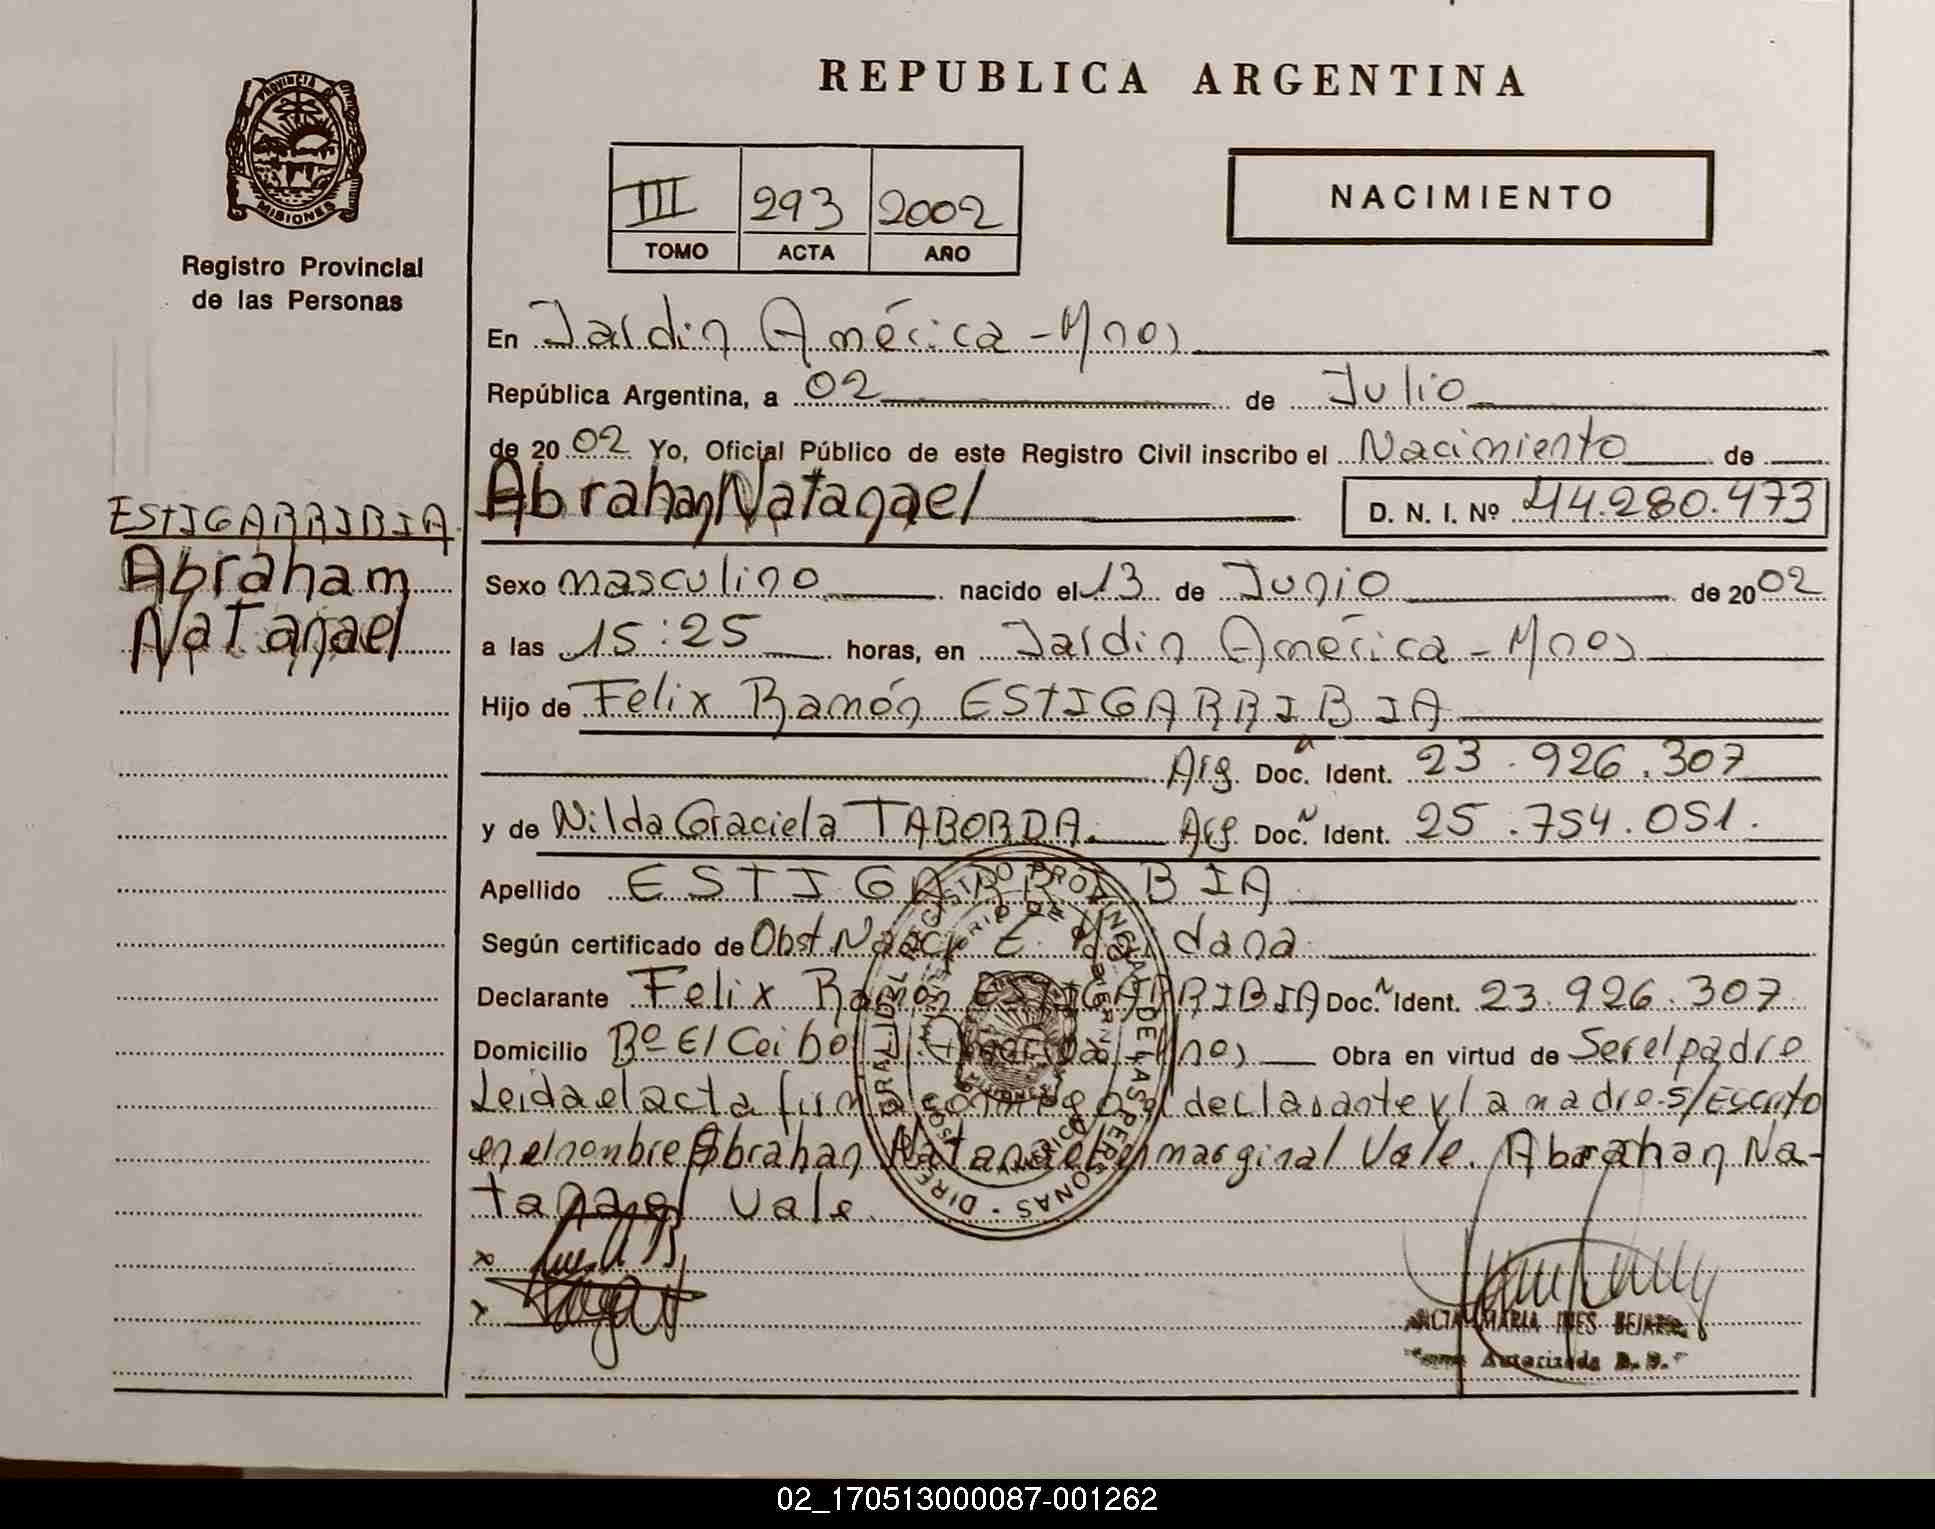 REPUBLICA ARGENTINA
PROVINCIA DE MISIONES
Registro Provincial
de las Personas
III 293 2002
TOMO ACTA AÑO
NACIMIENTO
En Jardin América - Mnes
República Argentina, a 02 de Julio
de 2002 Yo, Oficial Público de este Registro Civil inscribo el Nacimiento de
ESTIGARRIBIA
Abraham
Natanael
Abrahan Natanael D. N. I. Nº 44.280.473
Sexo masculino nacido el 13 de Junio de 2002
a las 15:25 horas, en Jardin América - Mnes
Hijo de Felix Ramón ESTIGARRIBIA
Arg. Doc. Ident. 23.926.307
y de Nilda Graciela TABORDA. Arg. Doc. Ident. 25.754.051.
Apellido ESTIGARRIBIA
Según certificado de Obst. Nancy E.
Declarante Felix Ramón ESTIGARRIBIA Doc. Ident. 23.926.307
Domicilio Bº El Ceibo Mnes Obra en virtud de Ser el padre
Leida el acta firma conmigo el declarante y la madre. S/Escrito
en el nombre Abrahan Natanael en marginal Vale. Abrahan Na-
tanael Vale.
MARIA INES
Autorizada
02_170513000087-001262